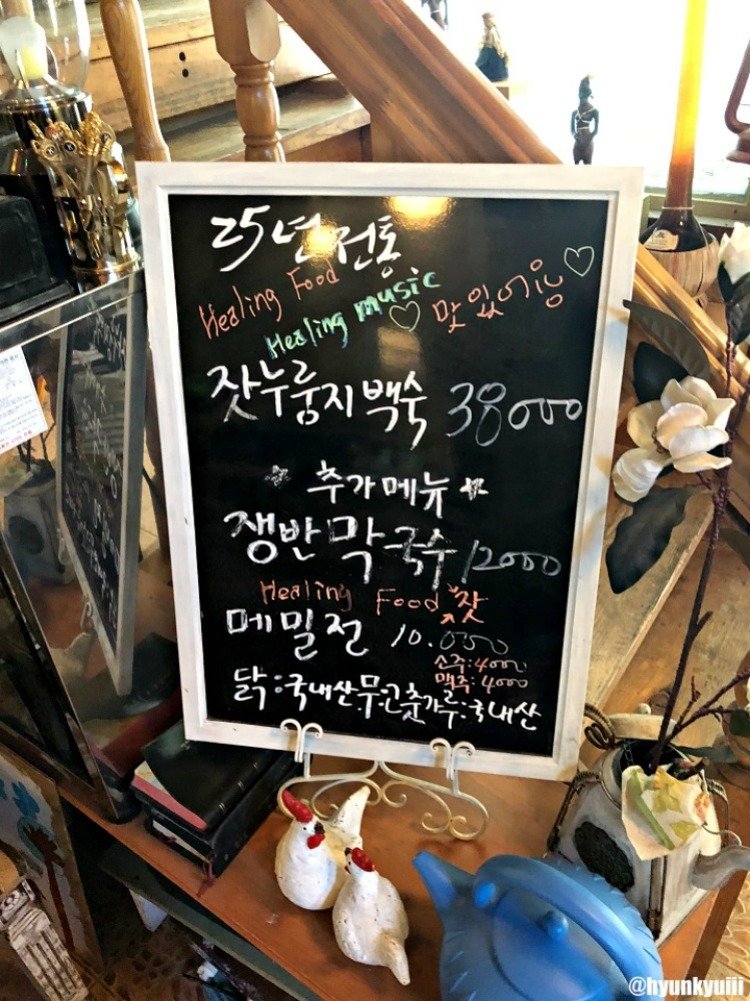 25년 전통
Healing Food
Healing music ♡ 맛있어용 ♡
잣누룽지백숙 38000
☆ 추가메뉴 ☆
쟁반막국수 12000
Healing Food 잣
메밀전 10.000
소주:4000
맥주:4000
닭:국내산 무:고춧가루:국내산
@hyunkyuiii